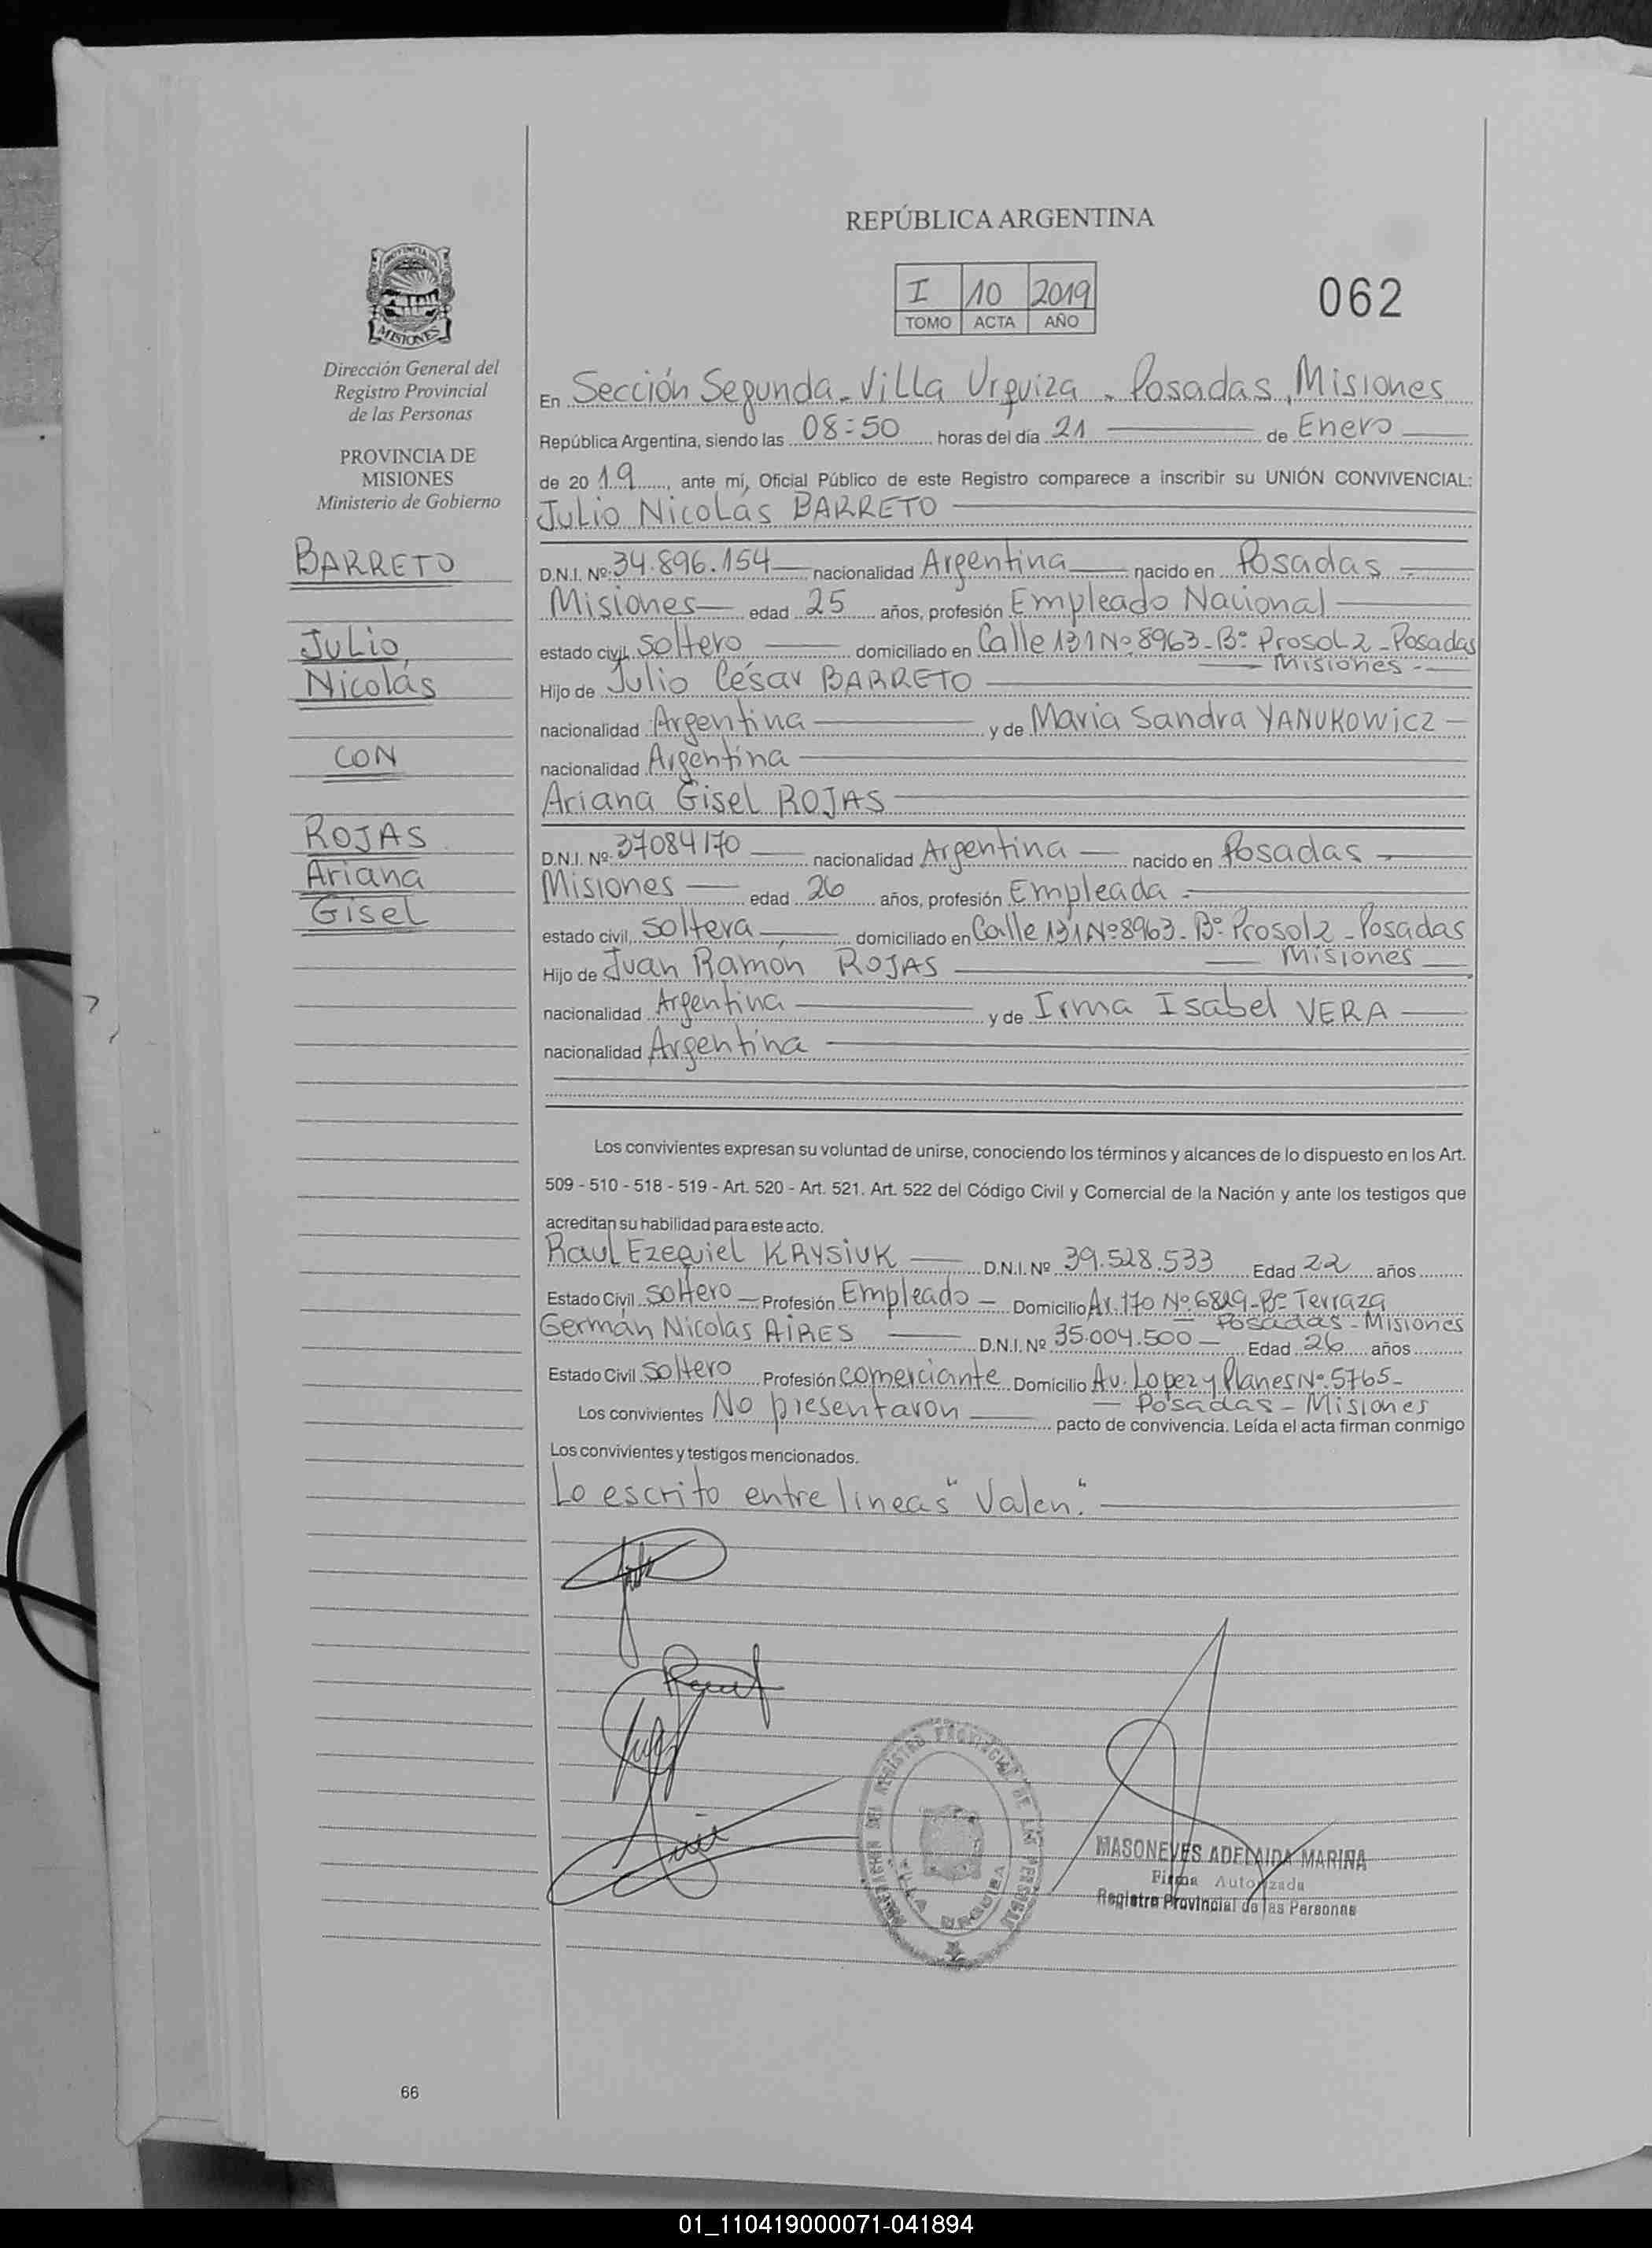 REPÚBLICA ARGENTINA
I 10 2019
TOMO ACTA AÑO
062
PROVINCIA DE
MISIONES
Dirección General del
Registro Provincial
de las Personas
PROVINCIA DE
MISIONES
Ministerio de Gobierno
BARRETO
Julio
Nicolás
CON
ROJAS
Ariana
Gisel
En Sección Segunda - Villa Urquiza - Posadas, Misiones
República Argentina, siendo las 08:50 horas del día 21 de Enero
de 2019, ante mí, Oficial Público de este Registro comparece a inscribir su UNIÓN CONVIVENCIAL:
Julio Nicolás BARRETO
D.N.I. Nº: 34.896.154 nacionalidad Argentina nacido en Posadas
Misiones edad 25 años, profesión Empleado Nacional
estado civil, Soltero domiciliado en Calle 131 Nº 8963 - Bº Prosol 2 - Posadas
Misiones
Hijo de Julio César BARRETO
nacionalidad Argentina y de Maria Sandra YANUKOWICZ
nacionalidad Argentina
Ariana Gisel ROJAS
D.N.I. Nº: 37084170 nacionalidad Argentina nacido en Posadas
Misiones edad 26 años, profesión Empleada
estado civil, soltera domiciliado en Calle 131 Nº 8963 - Bº Prosol 2 - Posadas
Misiones
Hijo de Juan Ramón ROJAS
nacionalidad Argentina y de Irma Isabel VERA
nacionalidad Argentina
Los convivientes expresan su voluntad de unirse, conociendo los términos y alcances de lo dispuesto en los Art.
509 - 510 - 518 - 519 - Art. 520 - Art. 521. Art. 522 del Código Civil y Comercial de la Nación y ante los testigos que
acreditan su habilidad para este acto.
Raul Ezequiel KRYSIUK D.N.I. Nº 39.528.533 Edad 22 años
Estado Civil Soltero Profesión Empleado Domicilio Av. 170 Nº 6829 - Bº Terraza
Posadas - Misiones
Germán Nicolas AIRES D.N.I. Nº 35.004.500 Edad 26 años
Estado Civil Soltero Profesión comerciante Domicilio Av. Lopez y Planes Nº 5765 -
Posadas - Misiones
Los convivientes No presentaron pacto de convivencia. Leída el acta firman conmigo
Los convivientes y testigos mencionados.
Lo escrito entre lineas "Valen".
REGISTRO PROVINCIAL DE LAS PERSONAS
VILLA URQUIZA
MASONEVES ADELAIDA MARINA
Firma Autorizada
Registro Provincial de las Personas
66
01_110419000071-041894